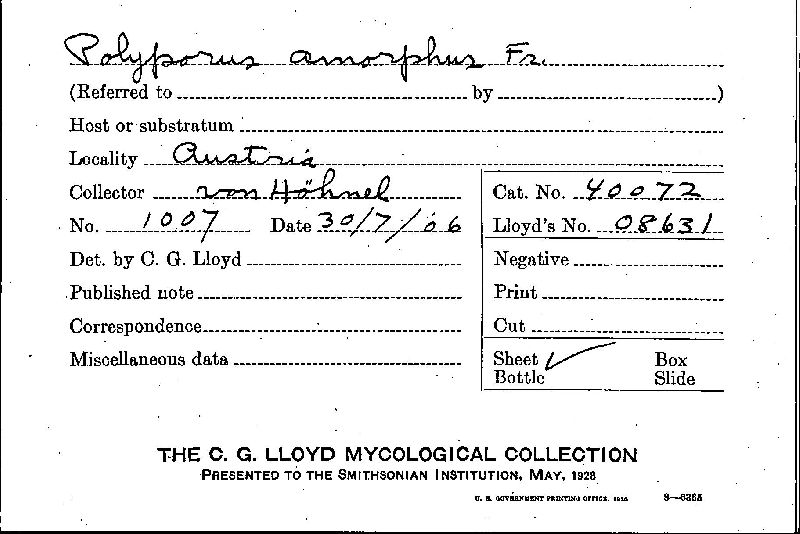 Polyporus amorphus Fr.
(Referred to by )
Host or substratum
Locality Austria
Collector von Höhnel
No. 1007 Date 30/7/06
Det. by C. G. Lloyd
Published note
Correspondence
Miscellaneous data
Cat. No. 40072
Lloyd's No. 08631
Negative
Print
Cut
Sheet ✓ Box
Bottle Slide
THE C. G. LLOYD MYCOLOGICAL COLLECTION
PRESENTED TO THE SMITHSONIAN INSTITUTION, MAY, 1928
U. S. GOVERNMENT PRINTING OFFICE.